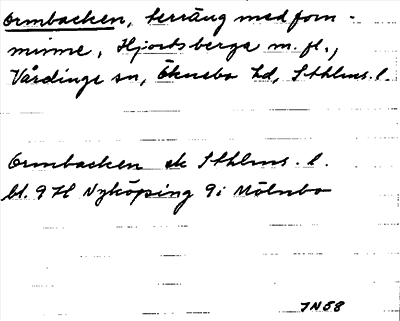 Ormbacken, terräng med forn-
minne, Hjortsberga m. fl.,
Vårdinge sn, Öknebo hd, Sthlms. l.
Ormbacken ek Sthlms. l.
bl. 9 H Nyköping 9i Mölnbo
JN58